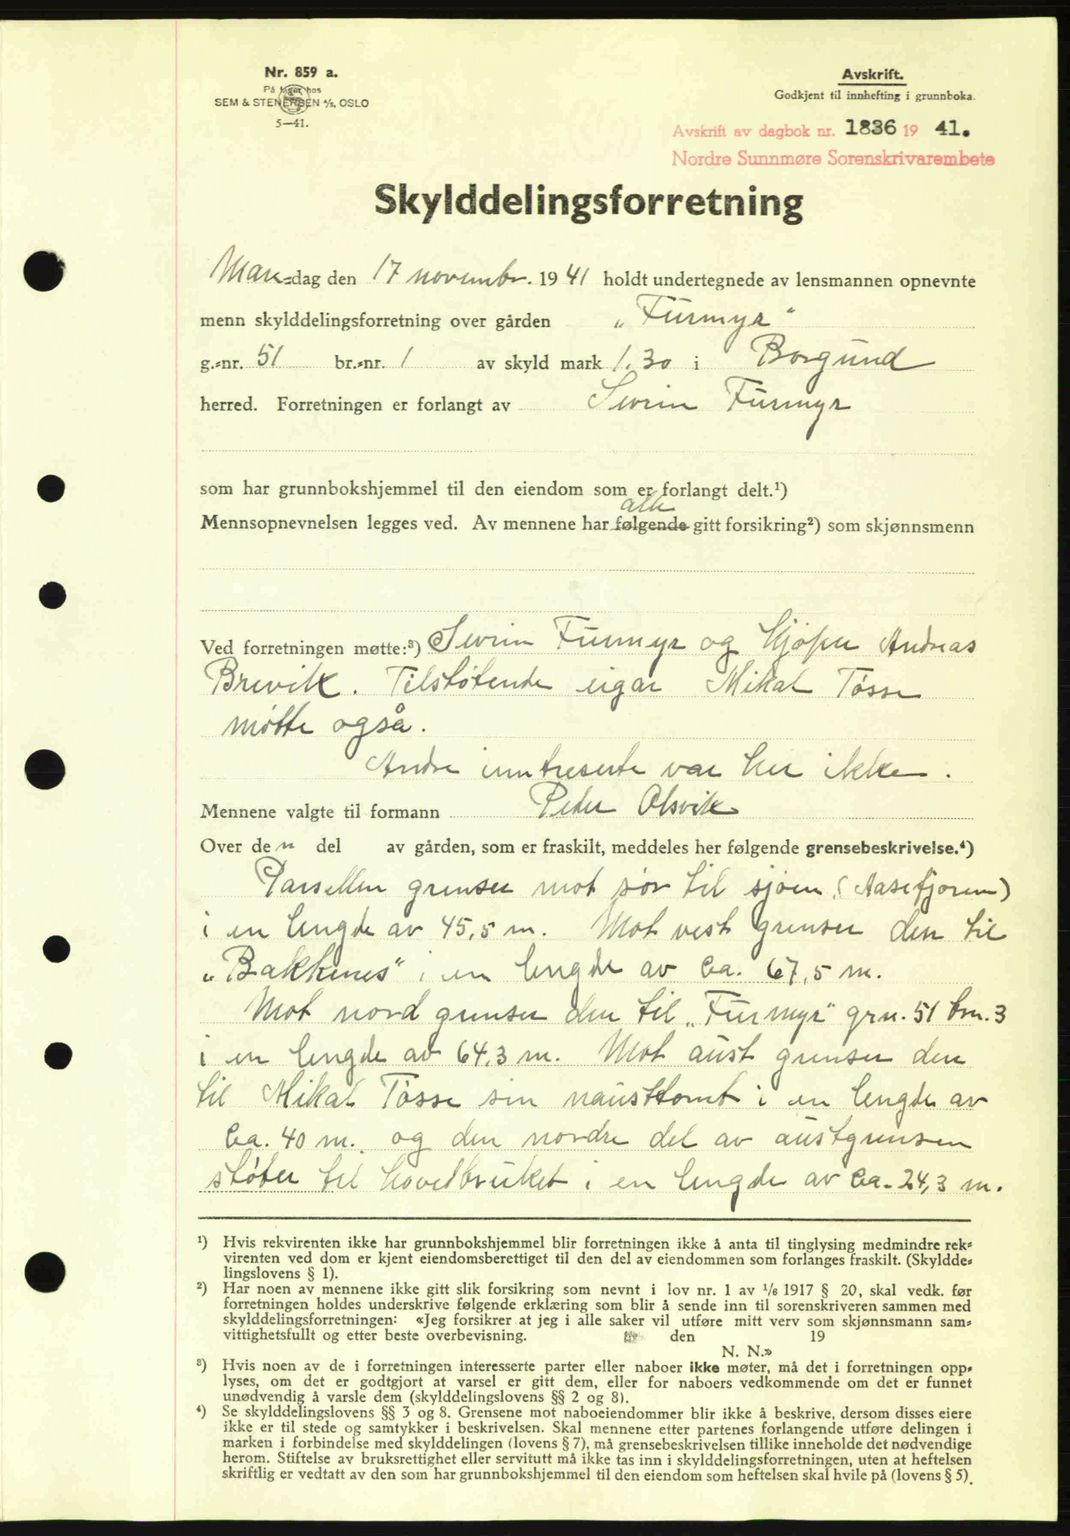 Nr. 859 a.
På lager hos
SEM & STENERSEN A/S, OSLO
5—41.
Avskrift.
Godkjent til innhefting i grunnboka.
Avskrift av dagbok nr. 1836 19 41.
Nordre Sunnmøre Sorenskrivarembete
Skylddelingsforretning
Man-dag den 17 novembr. 1941 holdt undertegnede av lensmannen opnevnte
menn skylddelingsforretning over gården „Furmyr"
g.-nr. 51 br.-nr. 1 av skyld mark 1,30 i Borgund
herred. Forretningen er forlangt av Sevrin Furmyr
som har grunnbokshjemmel til den eiendom som er forlangt delt.¹)
alle
Mennsopnevnelsen legges ved. Av mennene har følgende gitt forsikring²) som skjønnsmenn
Ved forretningen møtte:³) Sevrin Furmyr og kjøper Andreas
Brevik. Tilstøtende eigar Mikal Tøsse
møtte også.
Andre inntreserte var her ikke.
Mennene valgte til formann Peder Olsvik
Over den del av gården, som er fraskilt, meddeles her følgende grensebeskrivelse.⁴)
Parsellen grenser mot sør til sjøen (Aasefjoren)
i en lengde av 45,5 m. Mot vest grenser den til
„Bakkenes" i en lengde av ca. 67,5 m.
Mot nord grenser den til „Furmyr" grn. 51 brn. 3
i en lengde av 64,3 m. Mot aust grenser den
til Mikal Tøsse sin nausttomt i en lengde av
ca. 40 m. og den nordre del av austgrensen
støter til hovedbruket i en lengde av ca. 24,3 m.
¹) Hvis rekvirenten ikke har grunnbokshjemmel blir forretningen ikke å anta til tinglysing medmindre rek-
virenten ved dom er kjent eiendomsberettiget til den del av eiendommen som forlanges fraskilt. (Skyldde-
lingslovens § 1).
²) Har noen av mennene ikke gitt slik forsikring som nevnt i lov nr. 1 av 1/6 1917 § 20, skal vedk. før
forretningen holdes underskrive følgende erklæring som blir å sende inn til sorenskriveren sammen med
skylddelingsforretningen: «Jeg forsikrer at jeg i alle saker vil utføre mitt verv som skjønnsmann sam-
vittighetsfullt og etter beste overbevisning. den 19
N. N.»
³) Hvis noen av de i forretningen interesserte parter eller naboer ikke møter, må det i forretningen opp-
lyses, om det er godtgjort at varsel er gitt dem, eller for naboers vedkommende om det er funnet
unødvendig å varsle dem (skylddelingslovens §§ 2 og 8).
⁴) Se skylddelingslovens §§ 3 og 8. Grensene mot naboeiendommer blir ikke å beskrive, dersom disses eiere
ikke er til stede og samtykker i beskrivelsen. Skal mennene etter partenes forlangende utføre delingen i
marken i forbindelse med skylddelingen (lovens § 7), må grensebeskrivelsen tillike inneholde det nødvendige
herom. Stiftelse av bruksrettighet eller servitutt må ikke tas inn i skylddelingsforretningen, uten at heftelsen
skriftlig er vedtatt av den som har grunnbokshjemmel til den eiendom som heftelsen skal hvile på (lovens § 5).